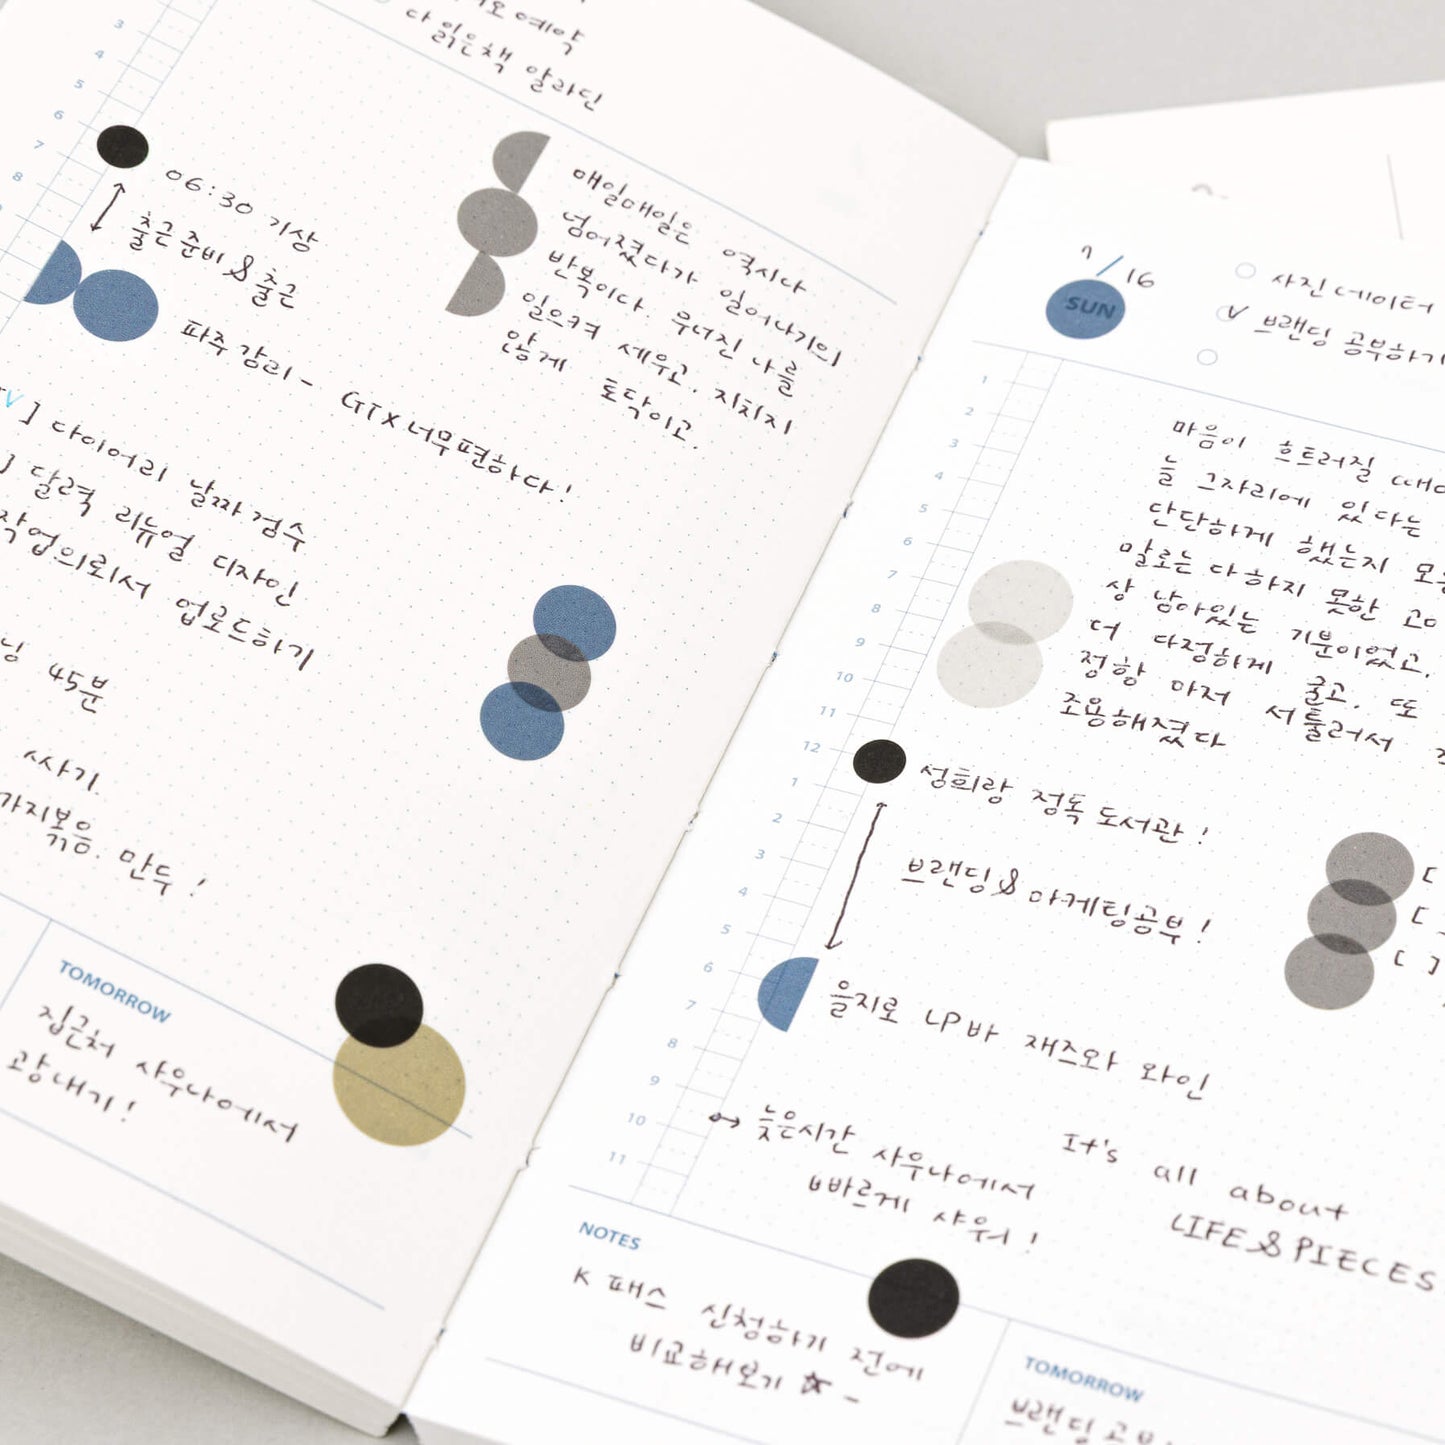 예약
다 읽은책 알라딘
3
4
5
6
7
8
06:30 기상
출근준비&출근
매일매일은 역시나
넘어졌다가 일어나기의
반복이다. 무너진 나를
일으켜 세우고, 지치지
않게 토닥이고.
파주 감리- GTX 너무편하다!
V] 다이어리 날짜검수
] 달력 리뉴얼 디자인
작업의뢰서 업로드하기
닝 45분
싸기.
가지볶음. 만두!
TOMORROW
집근처 사우나에서
광내기!
7/16
SUN
사진 데이터
V 브랜딩 공부하기
1
2
3
4
5
6
7
8
9
10
11
12
1
2
3
4
5
6
7
8
9
10
11
마음이 흐트러질 때
늘 그자리에 있다는
단단하게 했는지 모
말로는 다하지 못한
상 남아있는 기분이었고,
더 다정하게 굴고, 또
정항 마저 서툴러서
조용해졌다
성희랑 정독도서관!
브랜딩&마케팅공부!
[
[
[ ]
을지로 LP바 재즈와 와인
↔ 늦은시간 사우나에서
빠르게 샤워!
It's all about
LIFE&PIECES
NOTES
K 패스 신청하기 전에
비교해보기 ☆ -
TOMORROW
브랜딩 공부